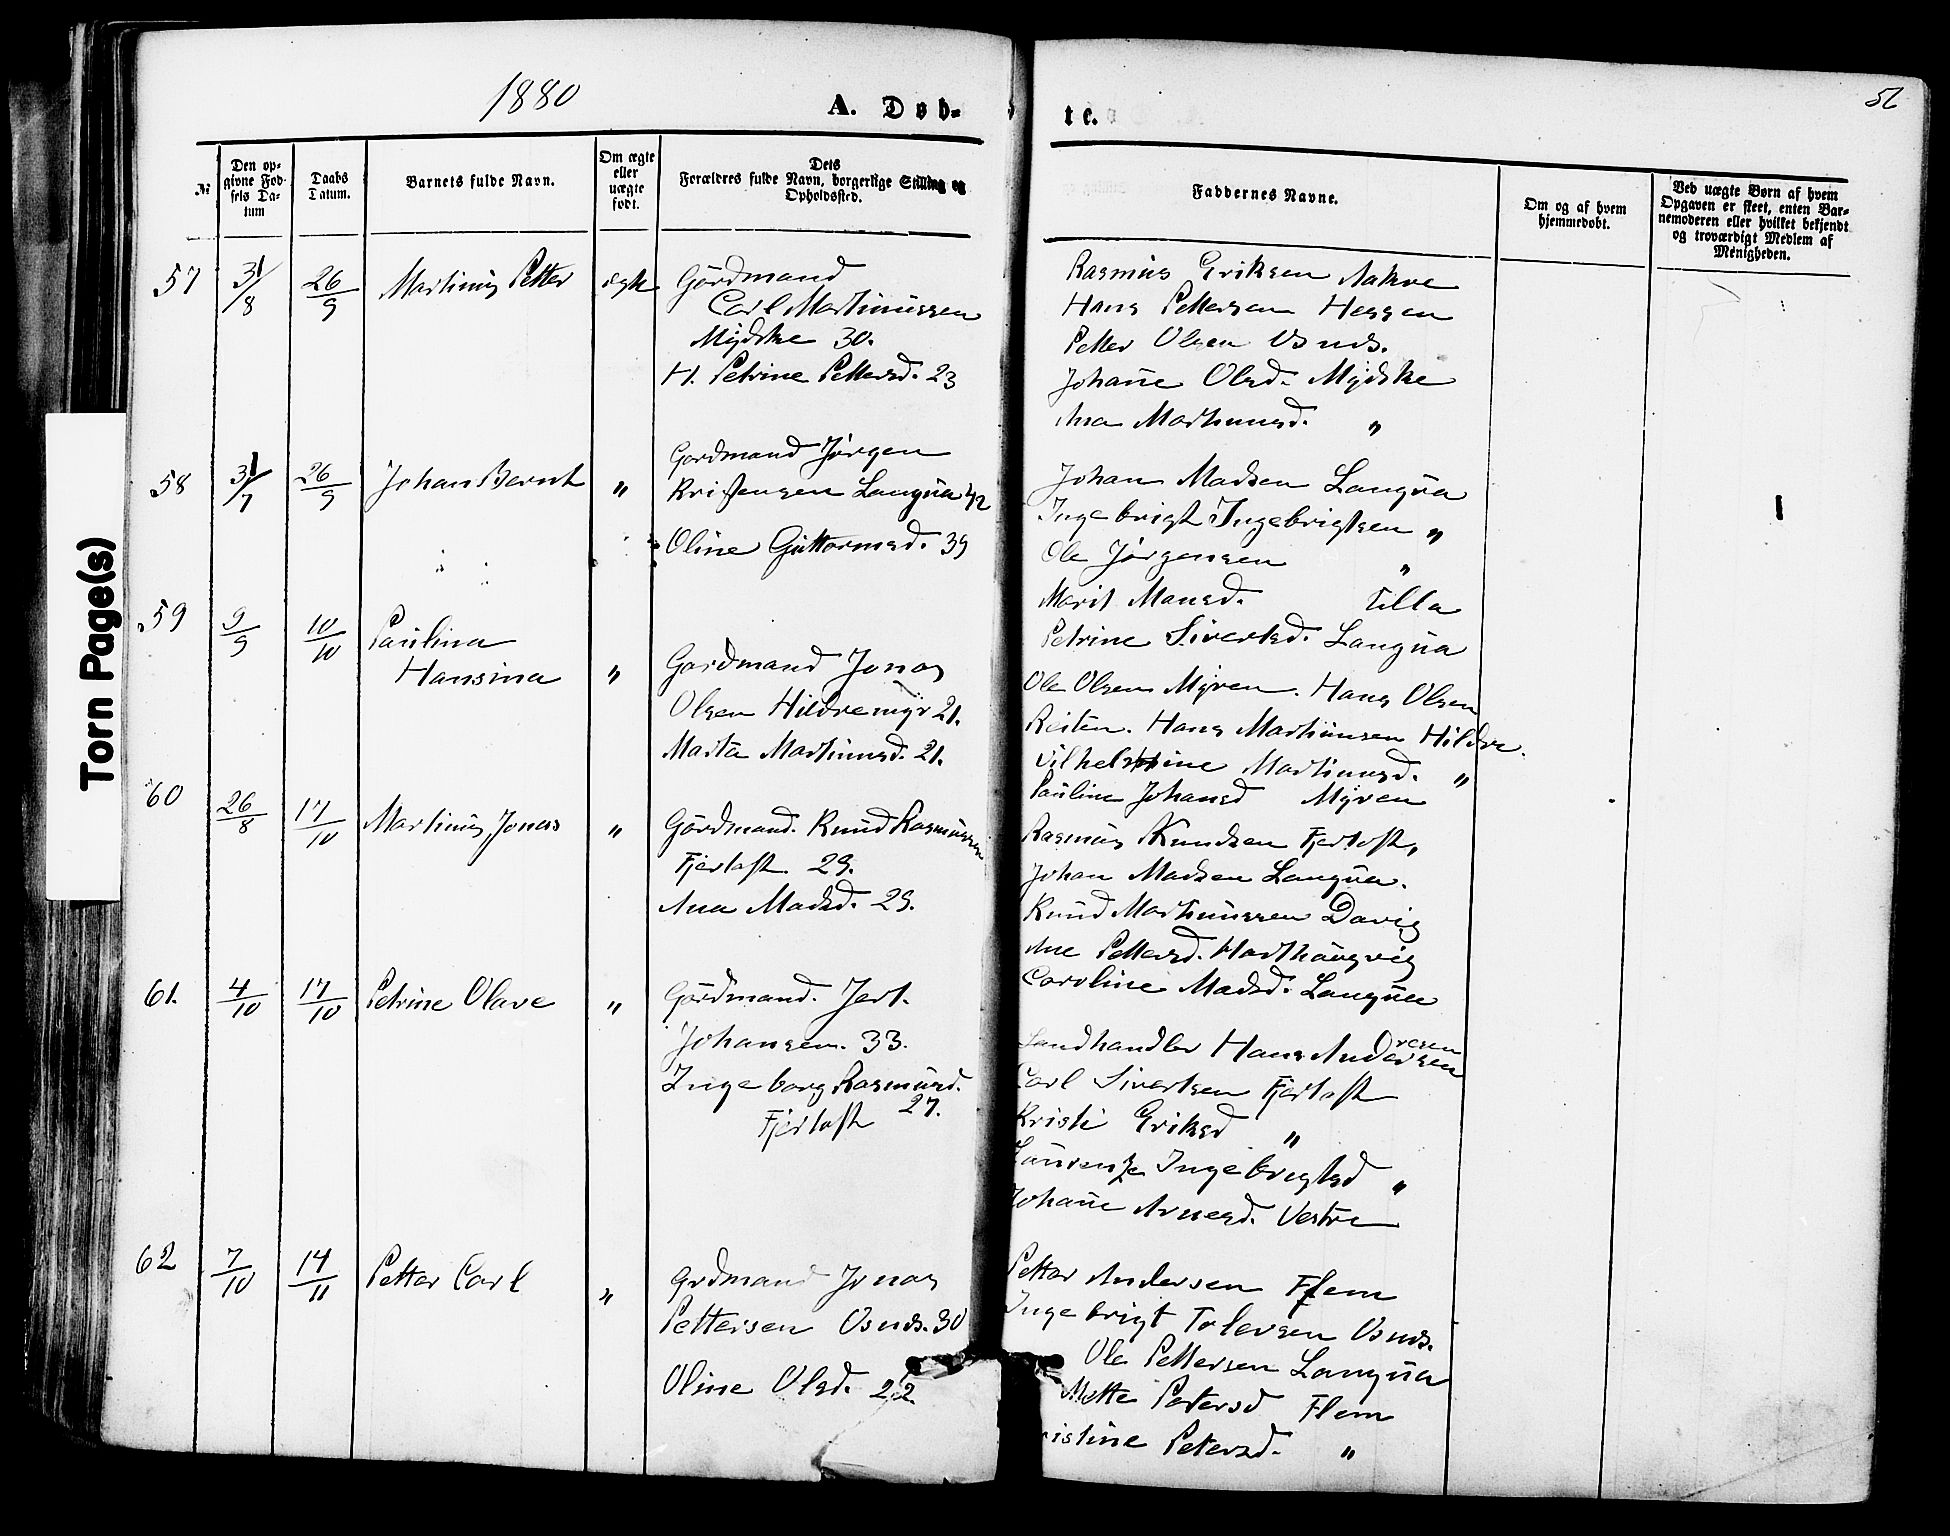 1880
A. Døb-
te.
56
№
Den op-
givne Fød-
sels Da-
tum
Daabs
Datum.
Barnets fulde Navn.
Om ægte
eller
uægte
født.
Dets
Forældres fulde Navn, borgerlige Stilling og
Opholdssted.
Faddernes Navne.
Om og af hvem
hjemmedøbt.
Ved uægte Børn af hvem
Opgaven er skeet, enten Bar-
nemoderen eller hvilket bekjendt
og troværdigt Medlem af
Menigheden.
57 31/8 26/9 Martinus Petter ægte Gårdmand
Carl Martinussen
Mydske 30.
H. Petrine Pettersd. 23
Rasmus Eriksen Aakre
Hans Pettersen Hessen
Petter Olsen Osnds.
Johane Olsd. Mydske
Ana Martinusd. "
58 31/7 26/9 Johan Bernt " Gordmand Jørgen
Kristensen Langva 42
Oline Guttormsd. 39
Johan Madsen Langva
Ingebrigt Ingebrigtsen "
Ole Jørgensen "
Marit Monsd. Ulla
Petrine Sivertsd. Langva
59 9/9 10/10 Paulina
Hansina " Gardmand Jonas
Olsen Hildremyr 21.
Marta Martinusd. 21.
Ole Olsen Myren. Hans Olsen
Reiten. Hans Martinusen Hildre.
Vilhelmine Martinusd. "
Pauline Johansd Myren
60 26/8 17/10 Martinus Jonas " Gårdmand. Knud Rasmussen
Fjertoft 29.
Ana Madsd. 29.
Rasmus Knudsen Fjertoft,
Johan Madsen Langva.
Knud Martinussen Davig
Ane Pettersd. Harthaugvig
Caroline Madsd. Langva
61. 4/10 17/10 Petrine Olave " Gårdmand. Jert.
Johansen. 33.
Ingeborg Rasmusd.
Fjertoft 27.
Landhandler Hans Andersen
Carl Sivertsen Fjertoft
Kristi Eriksd "
Laurense Ingebrigtsd "
Johane Arnesd. Vestre
62 7/10 14/11 Petter Carl " Grdmand Jonas
Pettersen Osnds. 30
Oline Olsd. 22
Petter Andersen Flem
Ingebrigt Tolersen Osnds.
Ole Pettersen Langva
Mette Petersd Flem
ristine Petersd. "
Torn Page(s)